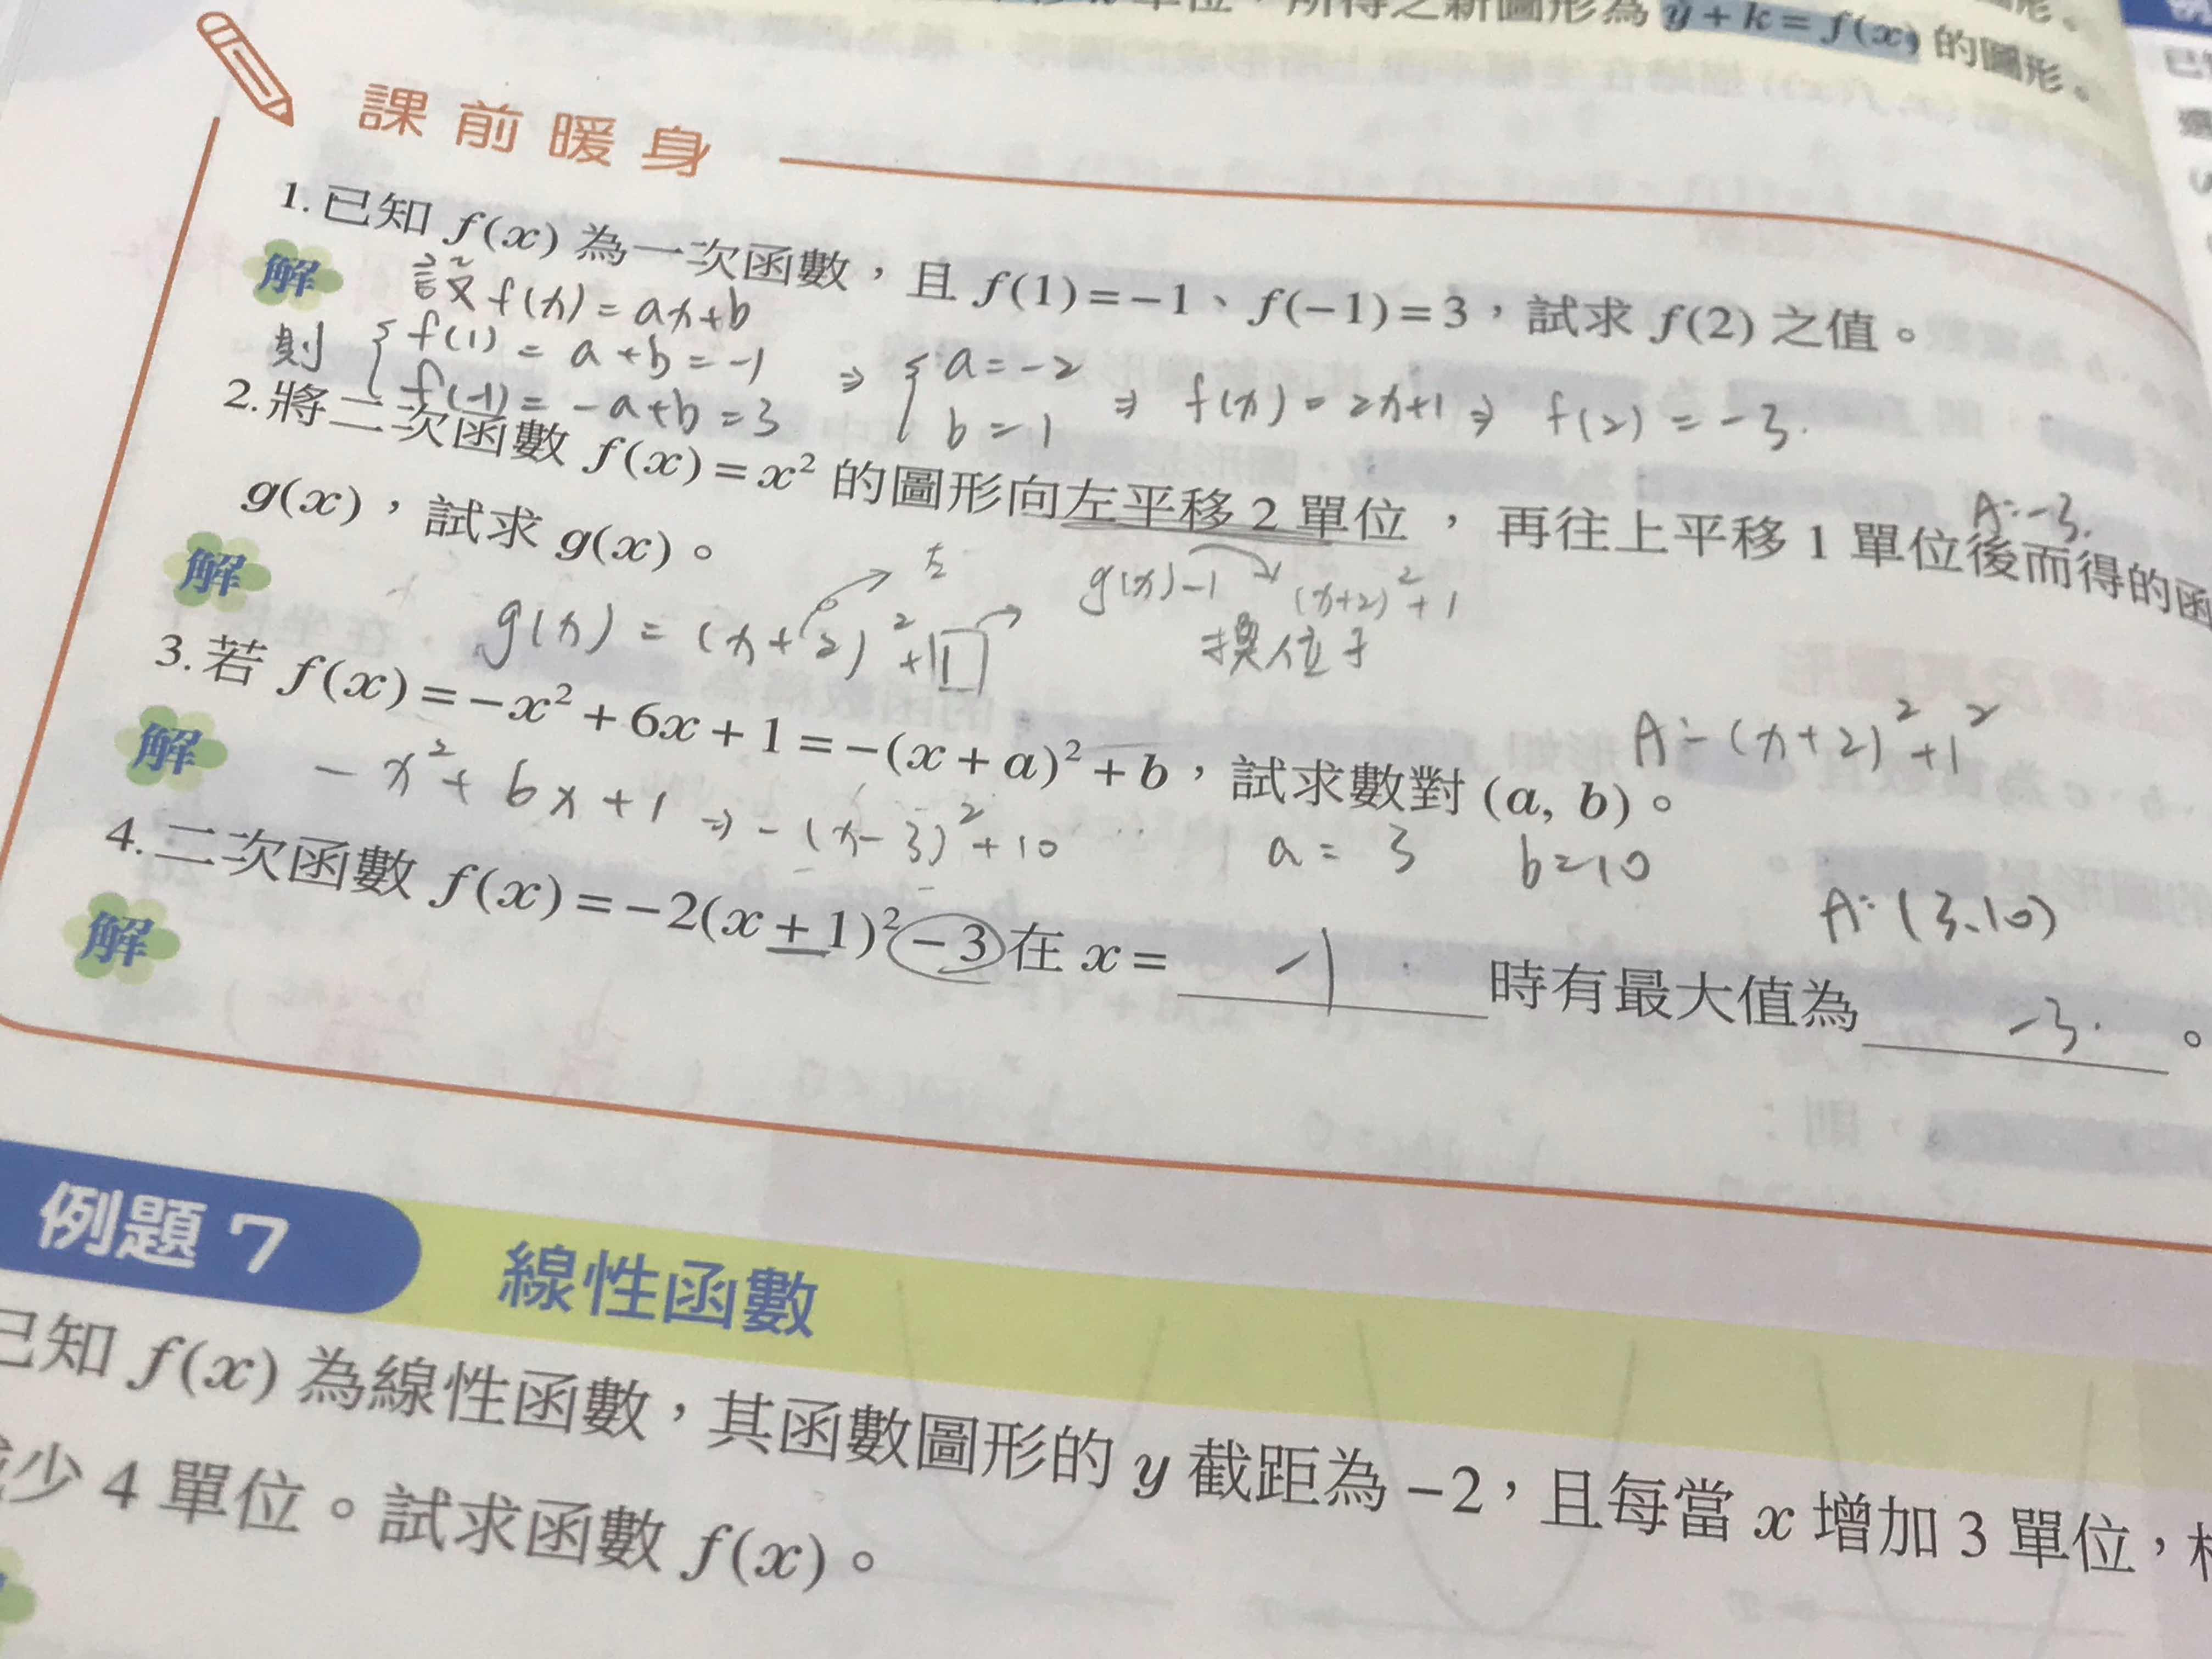 單位，所得之新圖形為 y + k = f(x) 的圖形。
課前暖身
1. 已知 f(x) 為一次函數，且 f(1) = −1、f(−1) = 3，試求 f(2) 之值。
解 設 f(x) = ax+b
則 { f(1) = a+b = -1
f(-1) = -a+b = 3
⇒ { a = -2
b = 1
⇒ f(x) = 2x+1 ⇒ f(2) = -3.
A: -3.
2. 將二次函數 f(x) = x² 的圖形向左平移 2 單位， 再往上平移 1 單位後而得的函
g(x)，試求 g(x)。
解 g(x) = (x+2)²+1
左
g(x)-1 (x+2)²+1
換位子
A: (x+2)²+1²
3. 若 f(x) = −x² + 6x + 1 = −(x + a)² + b，試求數對 (a, b)。
解 -x²+6x+1 ⇒ -(x-3)²+10 a = 3 b=10
A: (3、10)
4. 二次函數 f(x) = −2(x + 1)² − 3 在 x = -1 時有最大值為 -3. 。
解
例題 7 線性函數
已知 f(x) 為線性函數，其函數圖形的 y 截距為 −2，且每當 x 增加 3 單位，
少 4 單位。試求函數 f(x)。